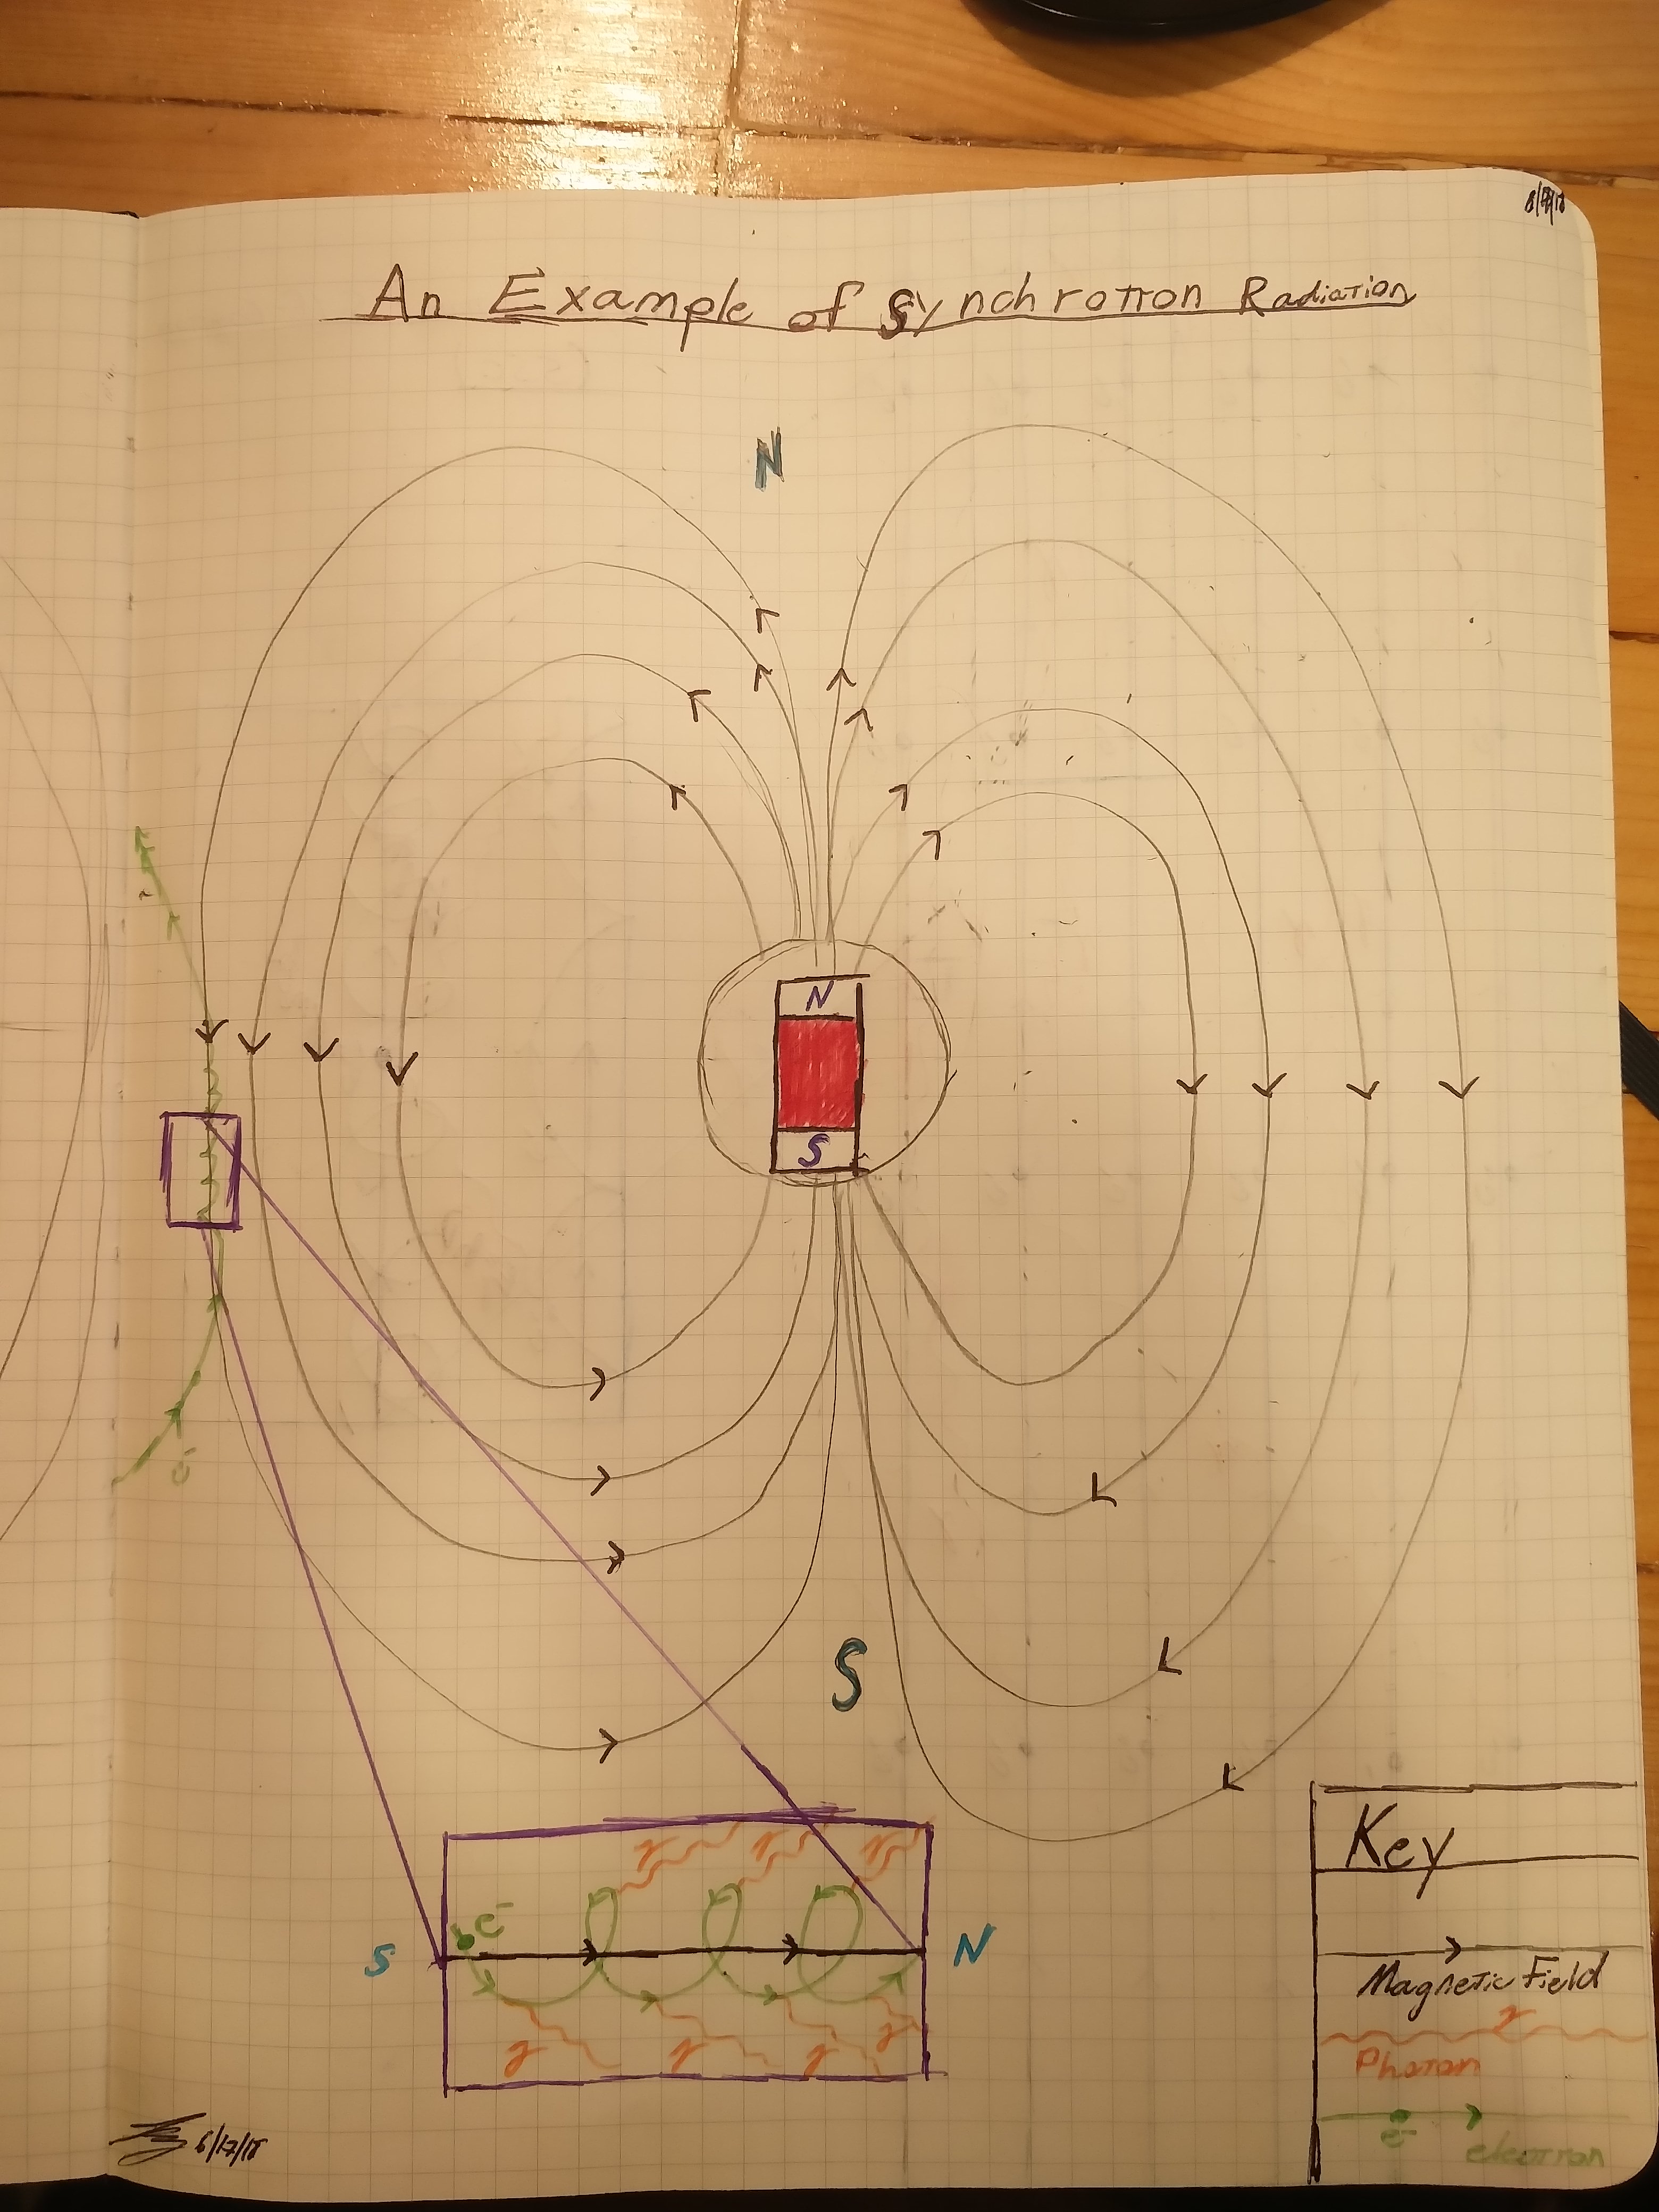 An Example of Synchrotron Radiation
N
N
S
e-
S
γ γ γ
e-
S
N
γ γ γ γ
Key
Magnetic Field
γ
Photon
e-
electron
6/17/18